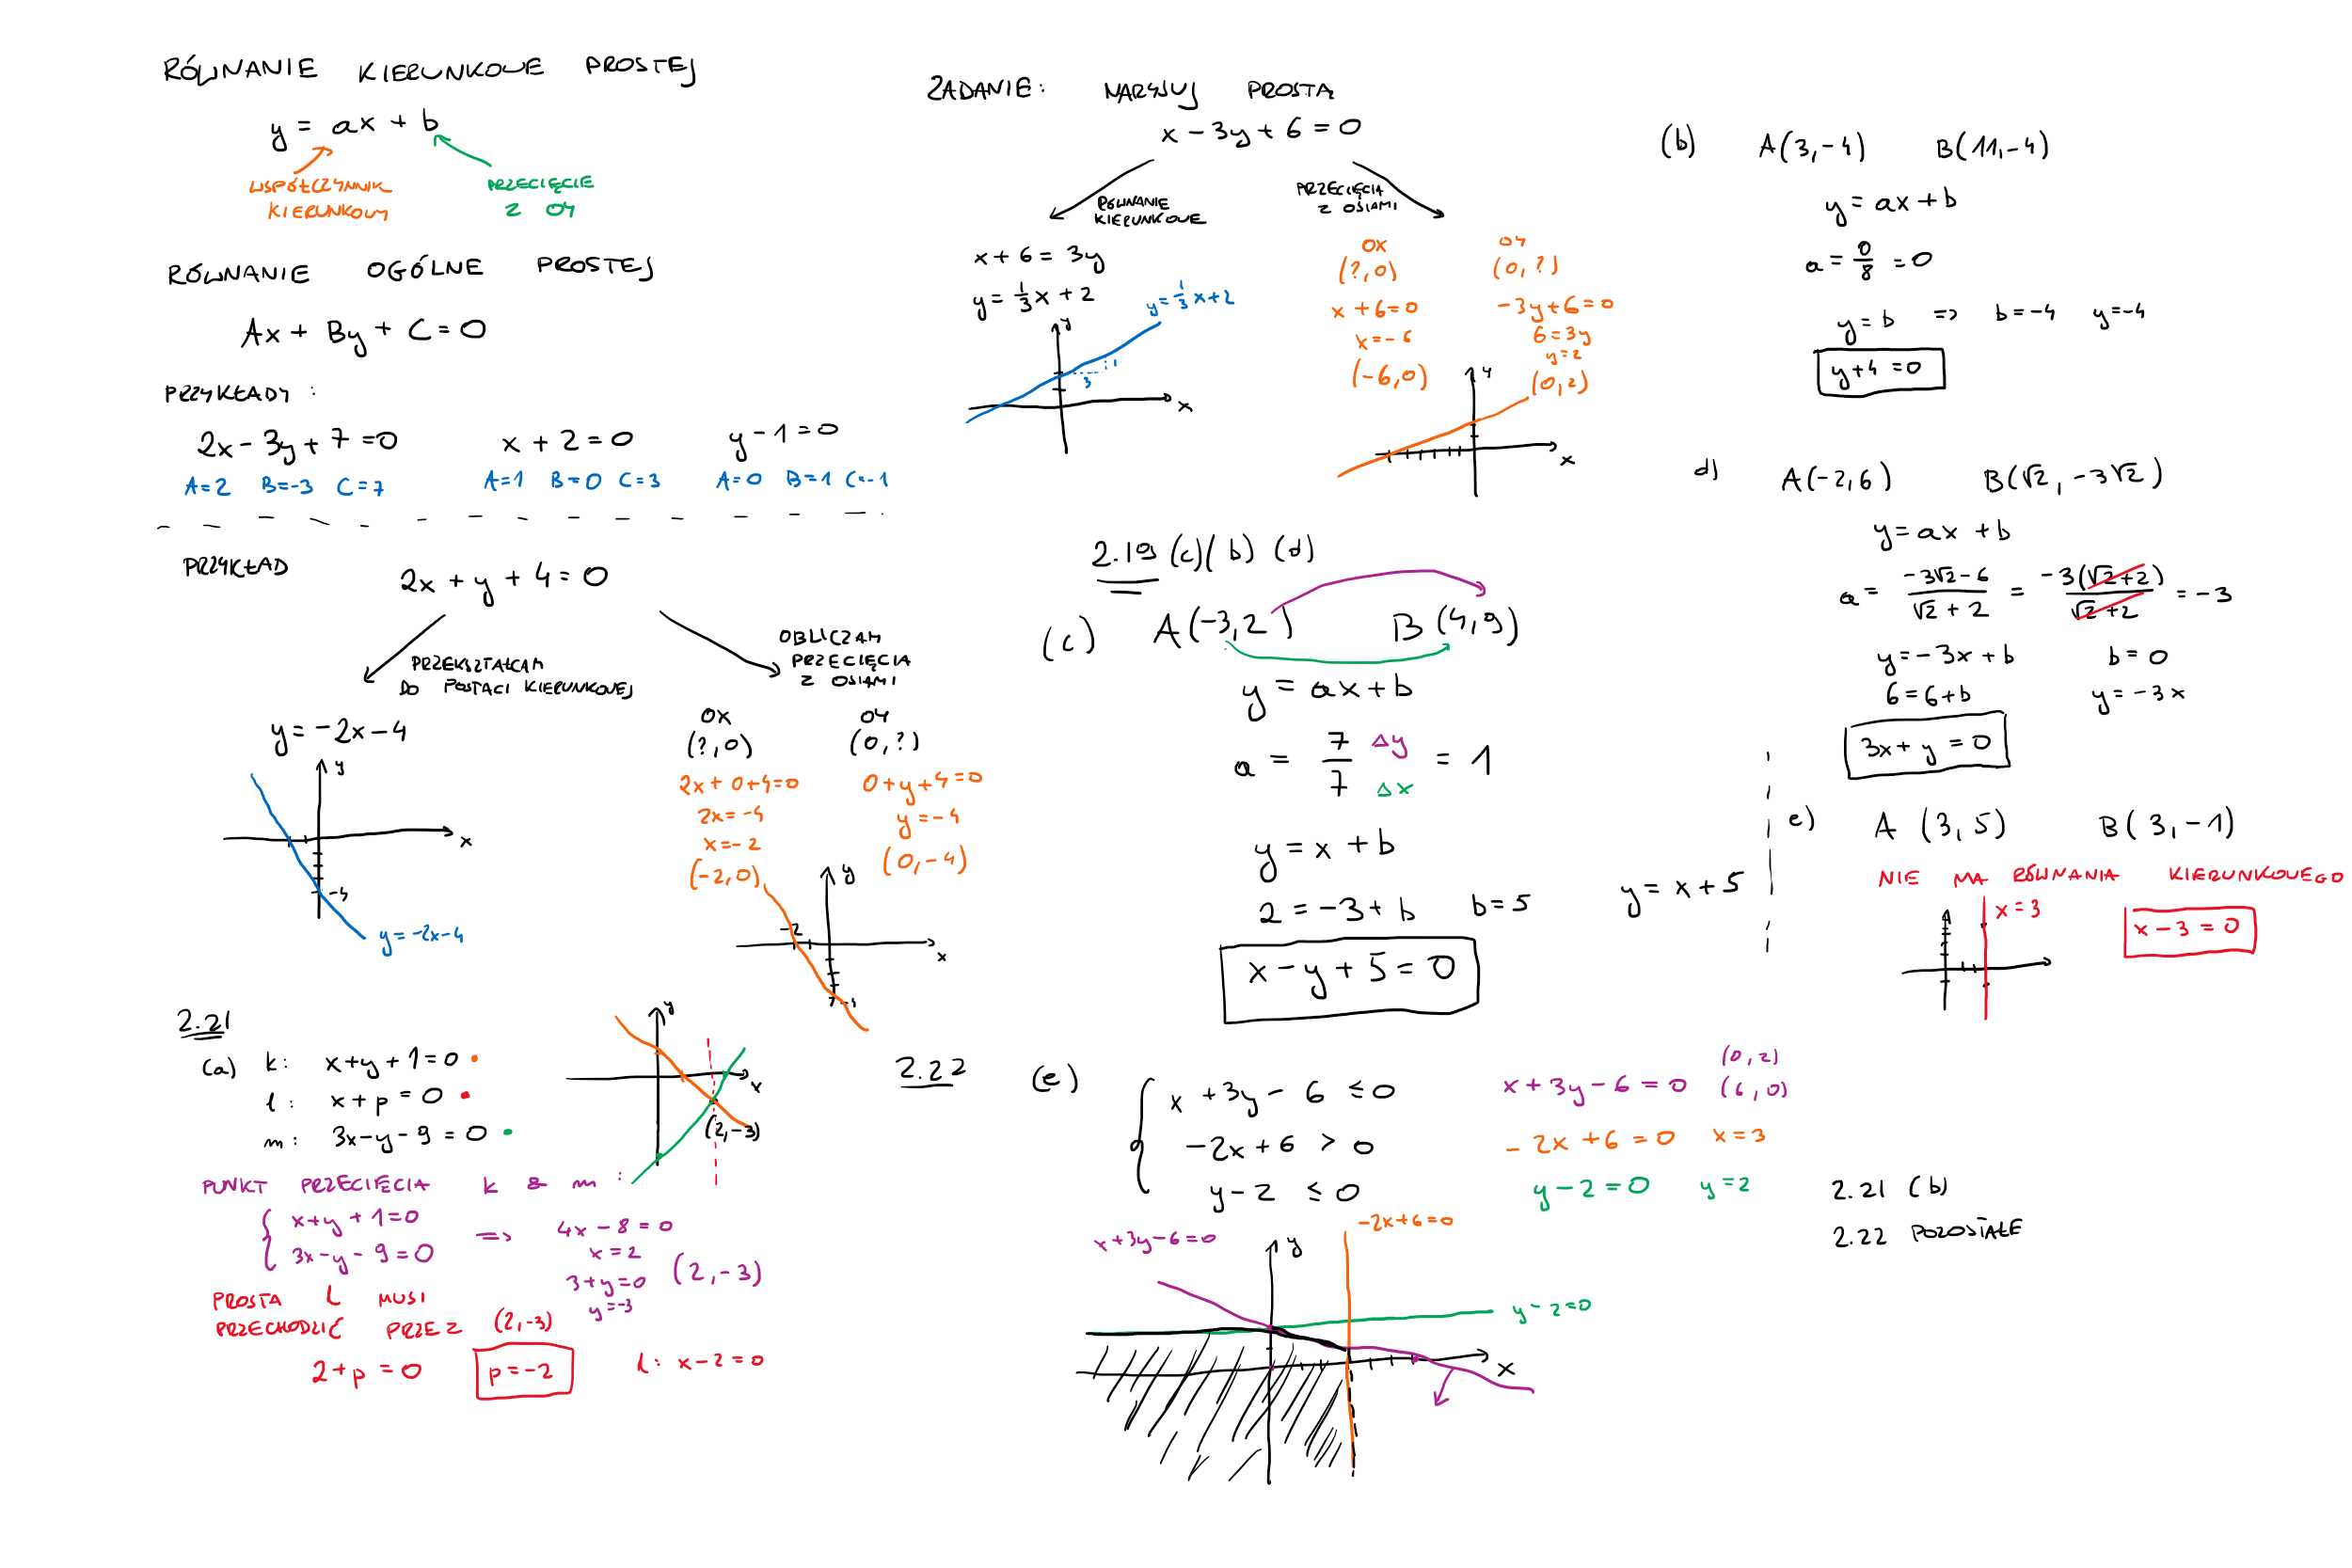 RÓWNANIE KIERUNKOWE PROSTEJ
y = ax + b
WSPÓŁCZYNNIK KIERUNKOWY
PRZECIĘCIE Z OY
RÓWNANIE OGÓLNE PROSTEJ
Ax + By + C = 0
PRZYKŁADY:
2x - 3y + 7 = 0    x + 2 = 0    y - 1 = 0
A=2 B=-3 C=7    A=1 B=0 C=3    A=0 B=1 C=-1
PRZYKŁAD
2x + y + 4 = 0
PRZEKSZTAŁCAM
DO POSTACI KIERUNKOWEJ
OBLICZAM
PRZECIĘCIA
Z OSIAMI
y = -2x - 4
y
x
-4
y = -2x-4
OX    OY
(?,0)    (0,?)
2x + 0+4=0    0+y+4=0
2x=-4    y=-4
x=-2    (0,-4)
(-2,0)
y
-2
x
-4
2.21
(a) k: x+y+1=0
l: x+p=0
m: 3x-y-9=0
y
x
(2,-3)
PUNKT PRZECIĘCIA k & m:
x+y+1=0
3x-y-9=0
=> 4x-8=0
x=2
3+y=0    (2,-3)
y=-3
PROSTA L MUSI
PRZECHODZIĆ PRZEZ (2,-3)
2+p=0    p=-2    l: x-2=0
ZADANIE: NARYSUJ PROSTĄ
x - 3y + 6 = 0
RÓWNANIE
KIERUNKOWE
PRZECIĘCIA
Z OSIAMI
x+6=3y
y=1/3x+2
y=1/3x+2
y
1
3
x
OX    OY
(?,0)    (0,?)
x+6=0    -3y+6=0
x=-6    6=3y
y=2
(-6,0)    (0,2)
y
x
2.19 (c)(b)(d)
(c) A(-3,2)    B(4,9)
y = ax+b
a = 7/7 Δy/Δx = 1
y = x + b
2 = -3+b    b=5    y = x+5
x-y+5=0
(b) A(3,-4)    B(11,-4)
y = ax+b
a = 0/8 = 0
y=b => b=-4    y=-4
y+4=0
d) A(-2,6)    B(√2,-3√2)
y=ax+b
a = -3√2-6/√2+2 = -3(√2+2)/√2+2 = -3
y=-3x+b    b=0
6=6+b    y=-3x
3x+y=0
e) A (3,5)    B(3,-1)
NIE MA RÓWNANIA KIERUNKOWEGO
x=3
x-3=0
2.22 (e)
x+3y-6 ≤ 0
-2x+6 > 0
y-2 ≤ 0
x+3y-6=0    (0,2)
(6,0)
-2x+6=0    x=3
y-2=0    y=2
x+3y-6=0
y
-2x+6=0
y-2=0
x
2.21 (b)
2.22 POZOSTAŁE